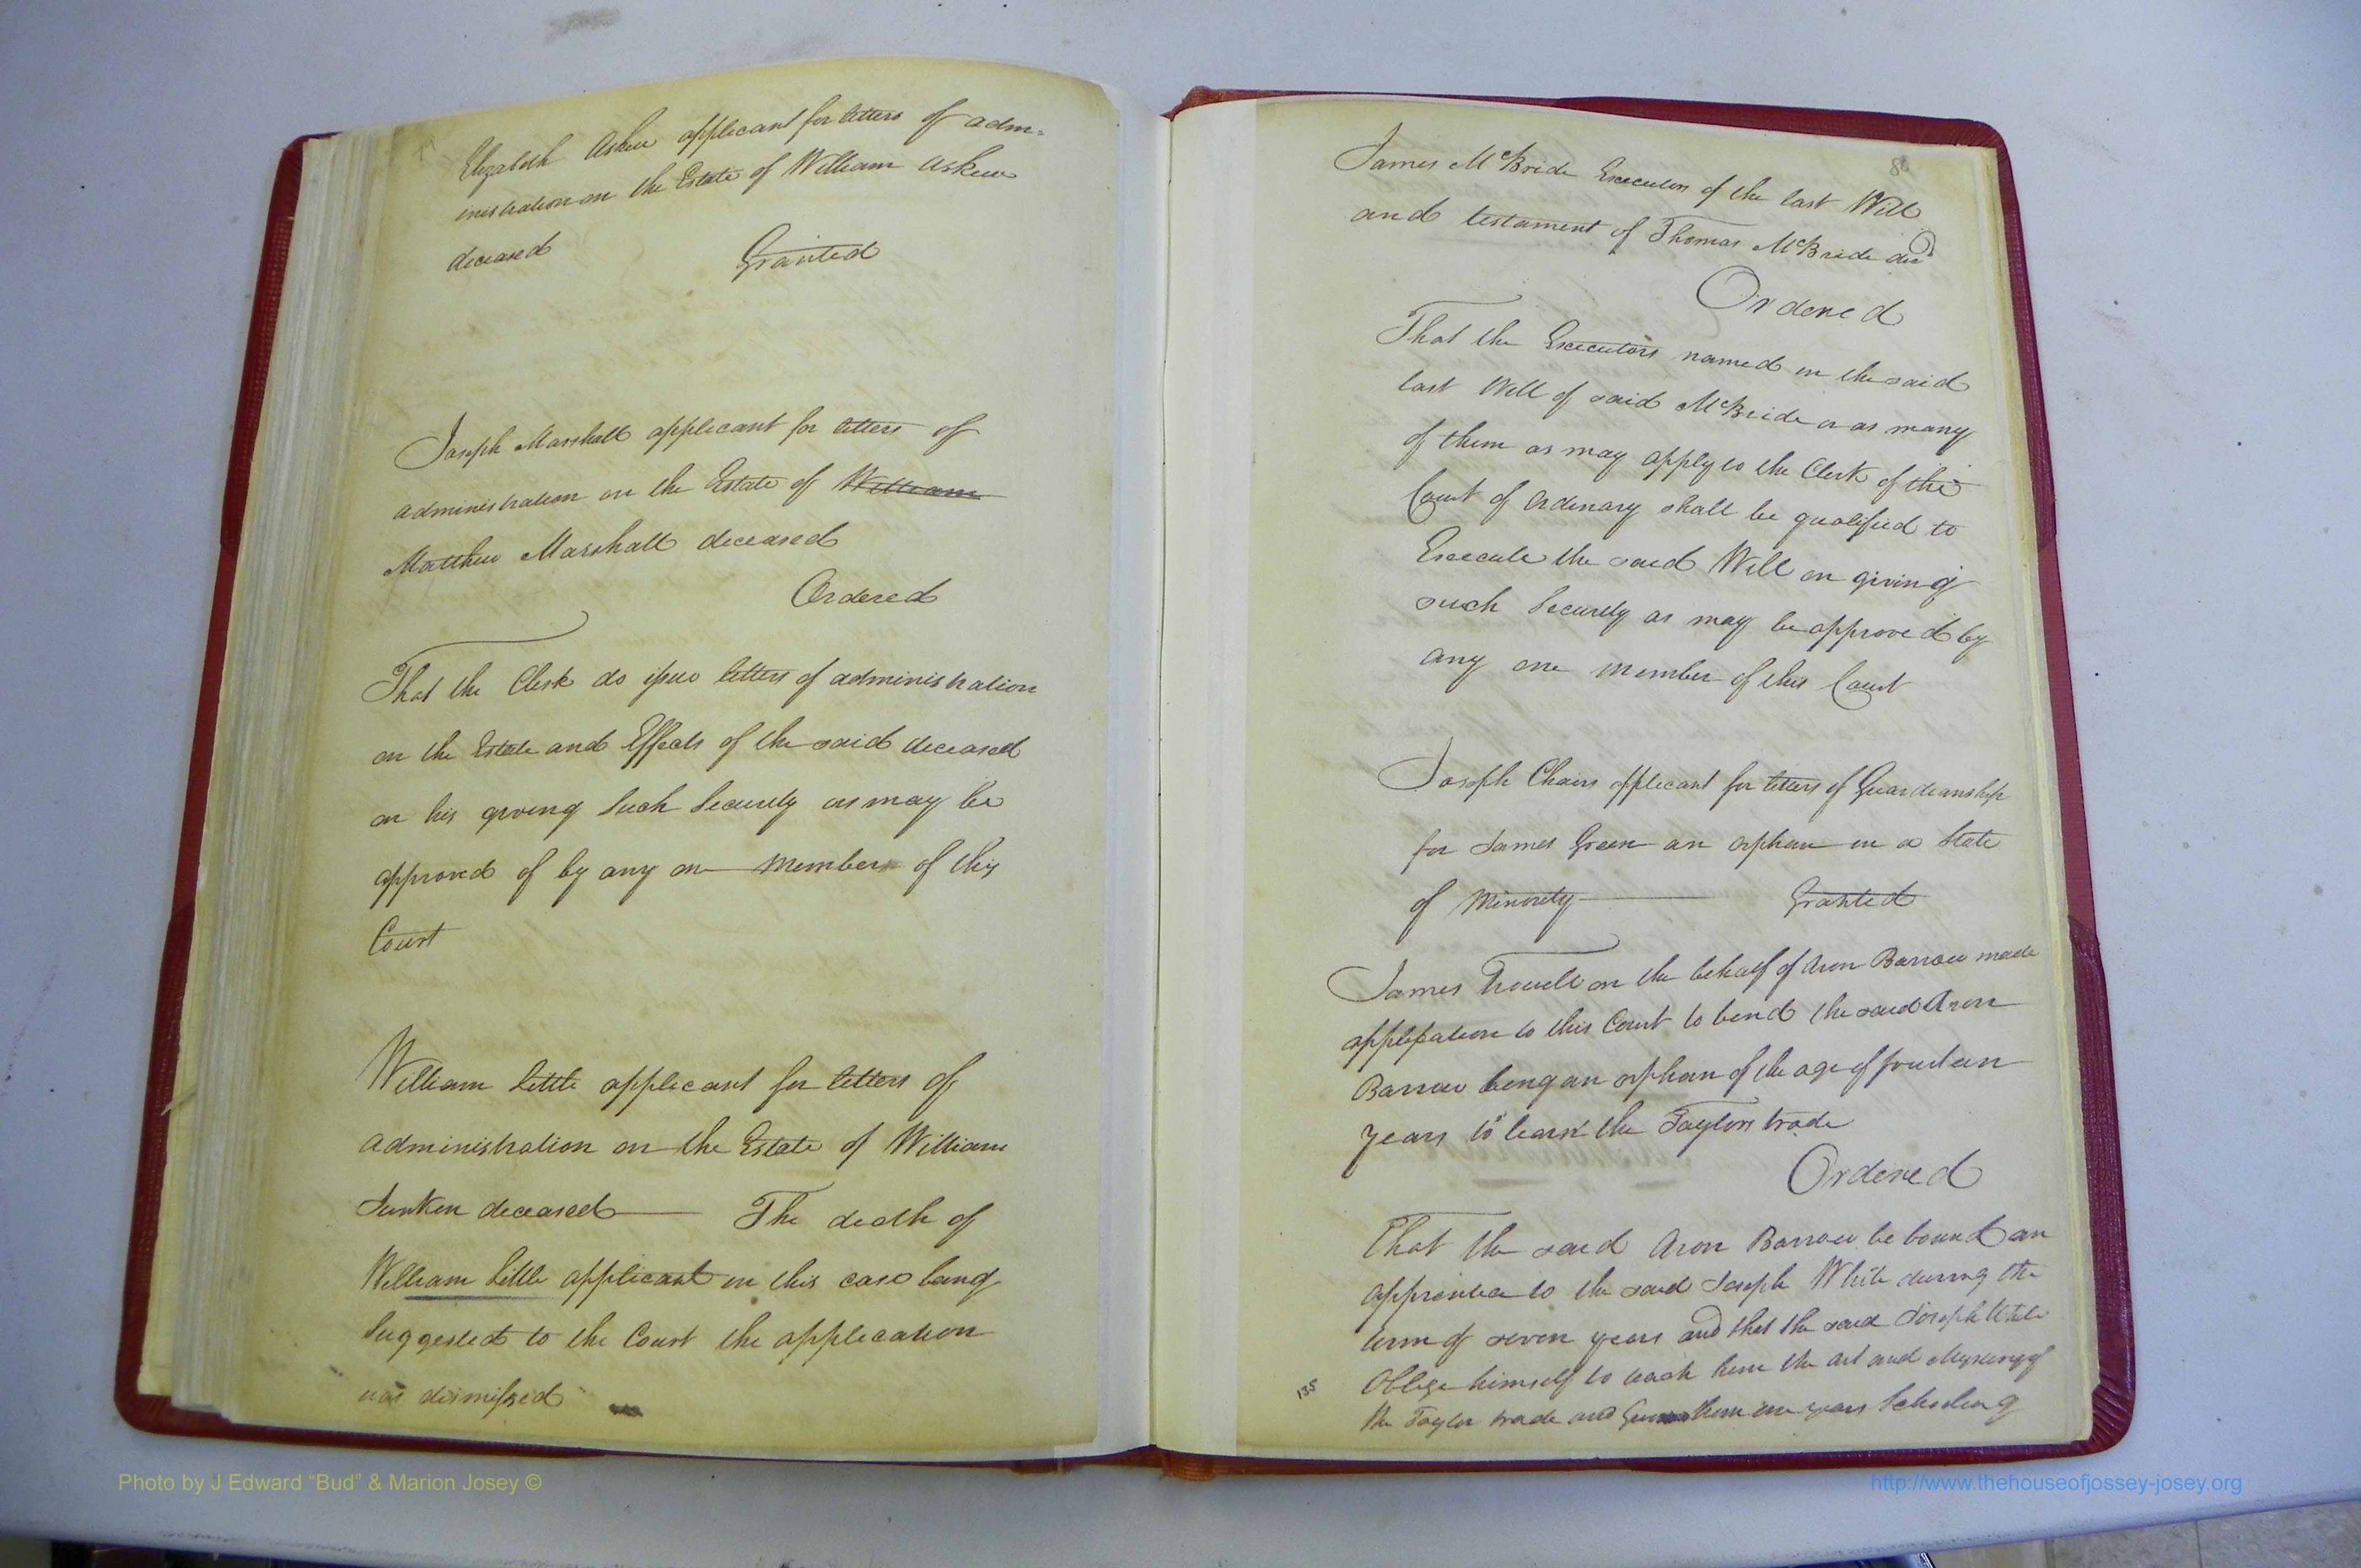 Elizabeth Askew applicant for letters of adm=
inistration on the Estate of William Askew
deceased Granted
Joseph Marshall applicant for letters of
administration on the Estate of William
Matthew Marshall deceased
Ordered
That the Clerk do issue letters of administration
on the Estate and Effects of the said deceased
on his giving Such Security as may be
approved of by any on member of this
Court
William Little applicant for letters of
administration on the Estate of William
Junken deceased — The death of
William Little applicant in this case being
Suggested to the Court the application
was dismissed
80
James McBride Executor of the last Will
and testament of Thomas McBride decd
Ordered
That the Executors named in the said
last Will of said McBride or as many
of them as may apply to the Clerk of the
Court of Ordinary shall be qualified to
Execute the said Will on giving
such Security as may be approved by
any one member of this Court
Joseph Chairs applicant for letters of Guardianship
for James Green an orphan in a State
of Minority — Granted
James on the behalf of Aron Barrow made
application to this Court to bend the said Aron
Barrow being an orphan of the age of fourteen
years to learn the Taylors trade
Ordered
That the said Aron Barrow be bound an
apprentice to the said Joseph White during the
term of seven years and that the said Joseph White
Oblige himself to teach him the art and Mystery of
135
the Taylor trade and him one years Schooling
Photo by J Edward “Bud” & Marion Josey ©
http://www.thehouseofjossey-josey.org